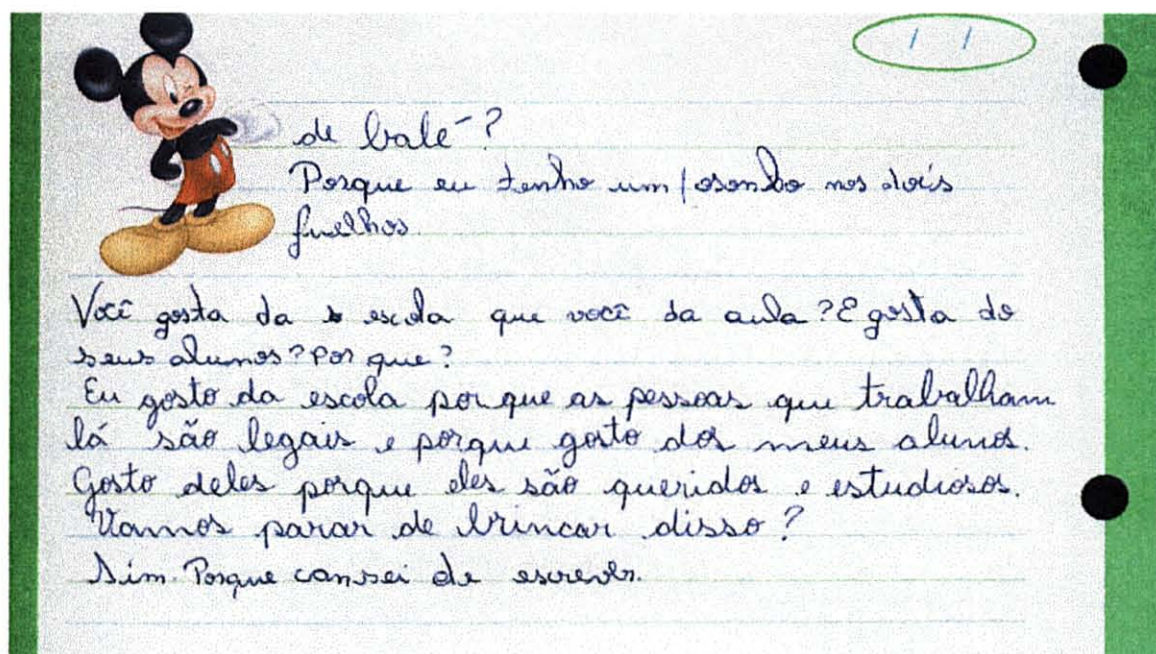 / /
de balé-?
Porque eu tenho um nos dois
juelhos.
Você gosta da escola que você da aula? E gosta do
seus alunos? Por que?
Eu gosto da escola porque as pessoas que trabalham
lá são legais e porque gosto dos meus alunos.
Gosto deles porque eles são queridos e estudiosos.
Vamos parar de brincar disso?
Sim. Porque cansei de escrever.